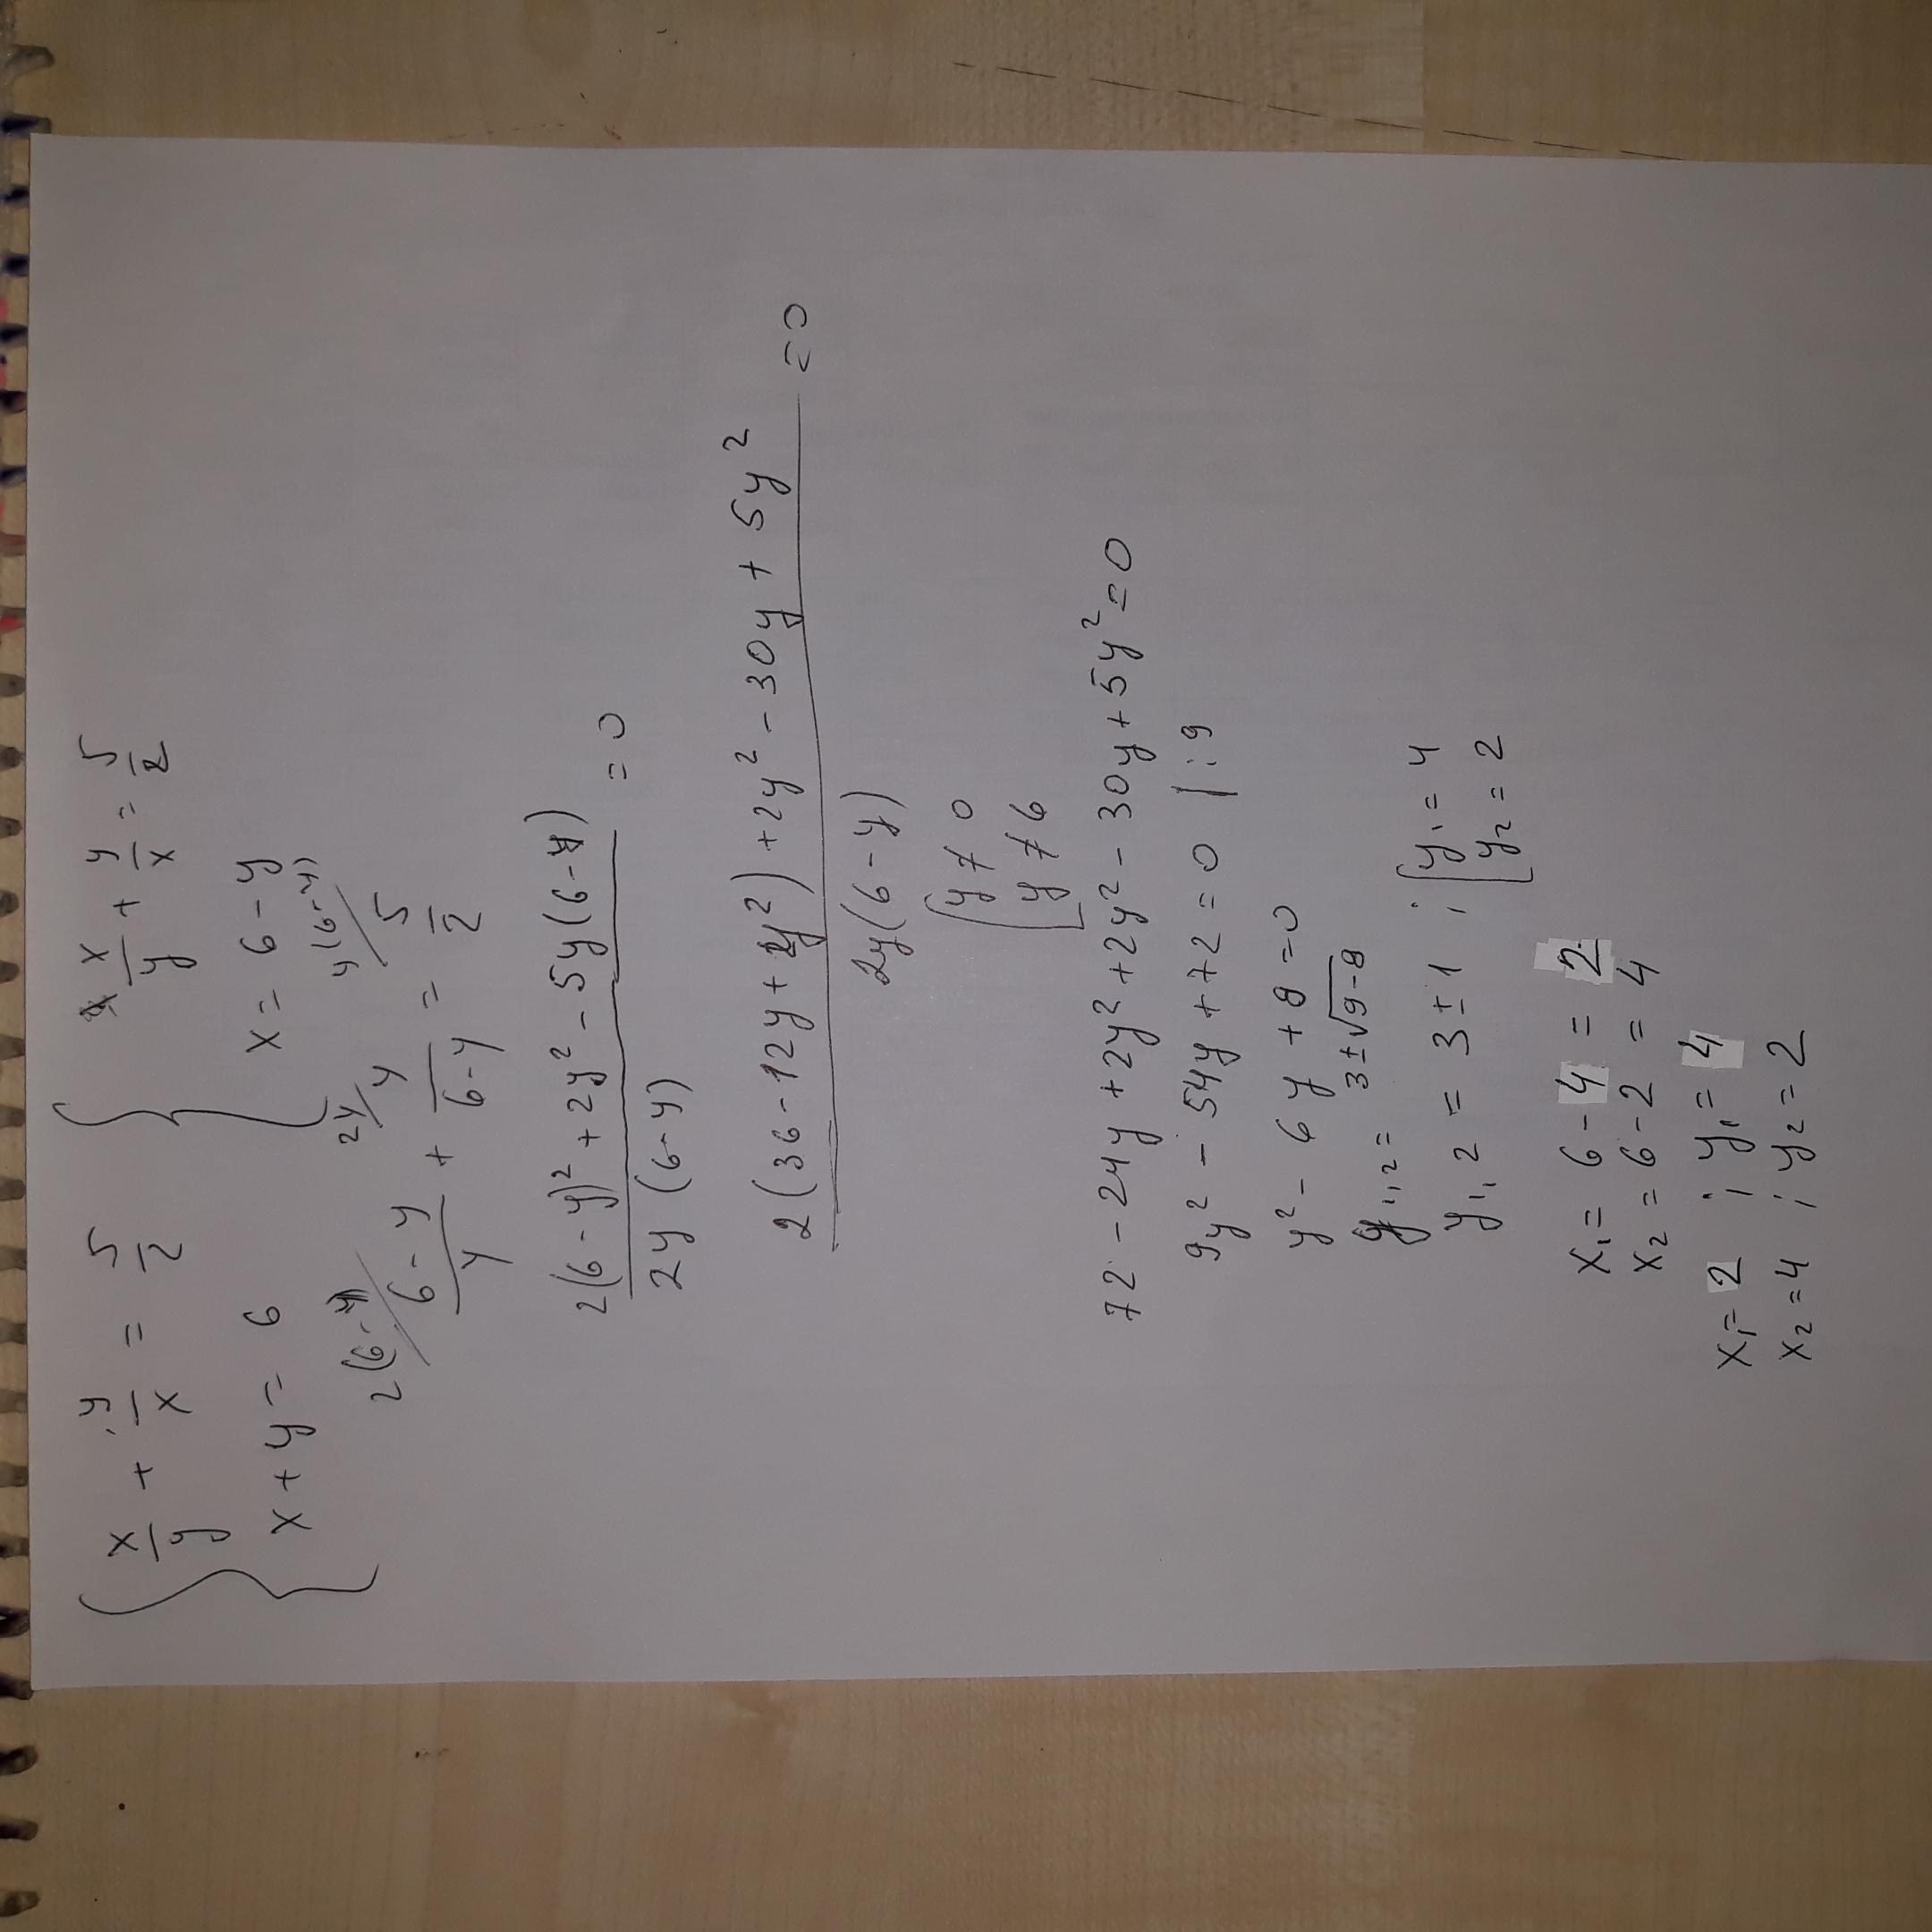 { x/y + y/x = 5/2   { x/y + y/x = 5/2
x + y = 6   x = 6 - y
2(6-y)/ (6-y)/y + 2y/ y/(6-y) = y(6-y)/ 5/2
(2(6-y)² + 2y² - 5y(6-y))/(2y(6-y)) = 0
(2(36 - 12y + y²) + 2y² - 30y + 5y²)/(2y(6-y)) = 0
[ y ≠ 0
y ≠ 6
72 - 24y + 2y² + 2y² - 30y + 5y² = 0
9y² - 54y + 72 = 0 | : 9
y² - 6y + 8 = 0
y1,2 = 3 ± √9-8
y1,2 = 3 ± 1 ; [ y1 = 4
y2 = 2
x1 = 6 - 4 = 2
x2 = 6 - 2 = 4
x1 = 2 ; y1 = 4
x2 = 4 ; y2 = 2